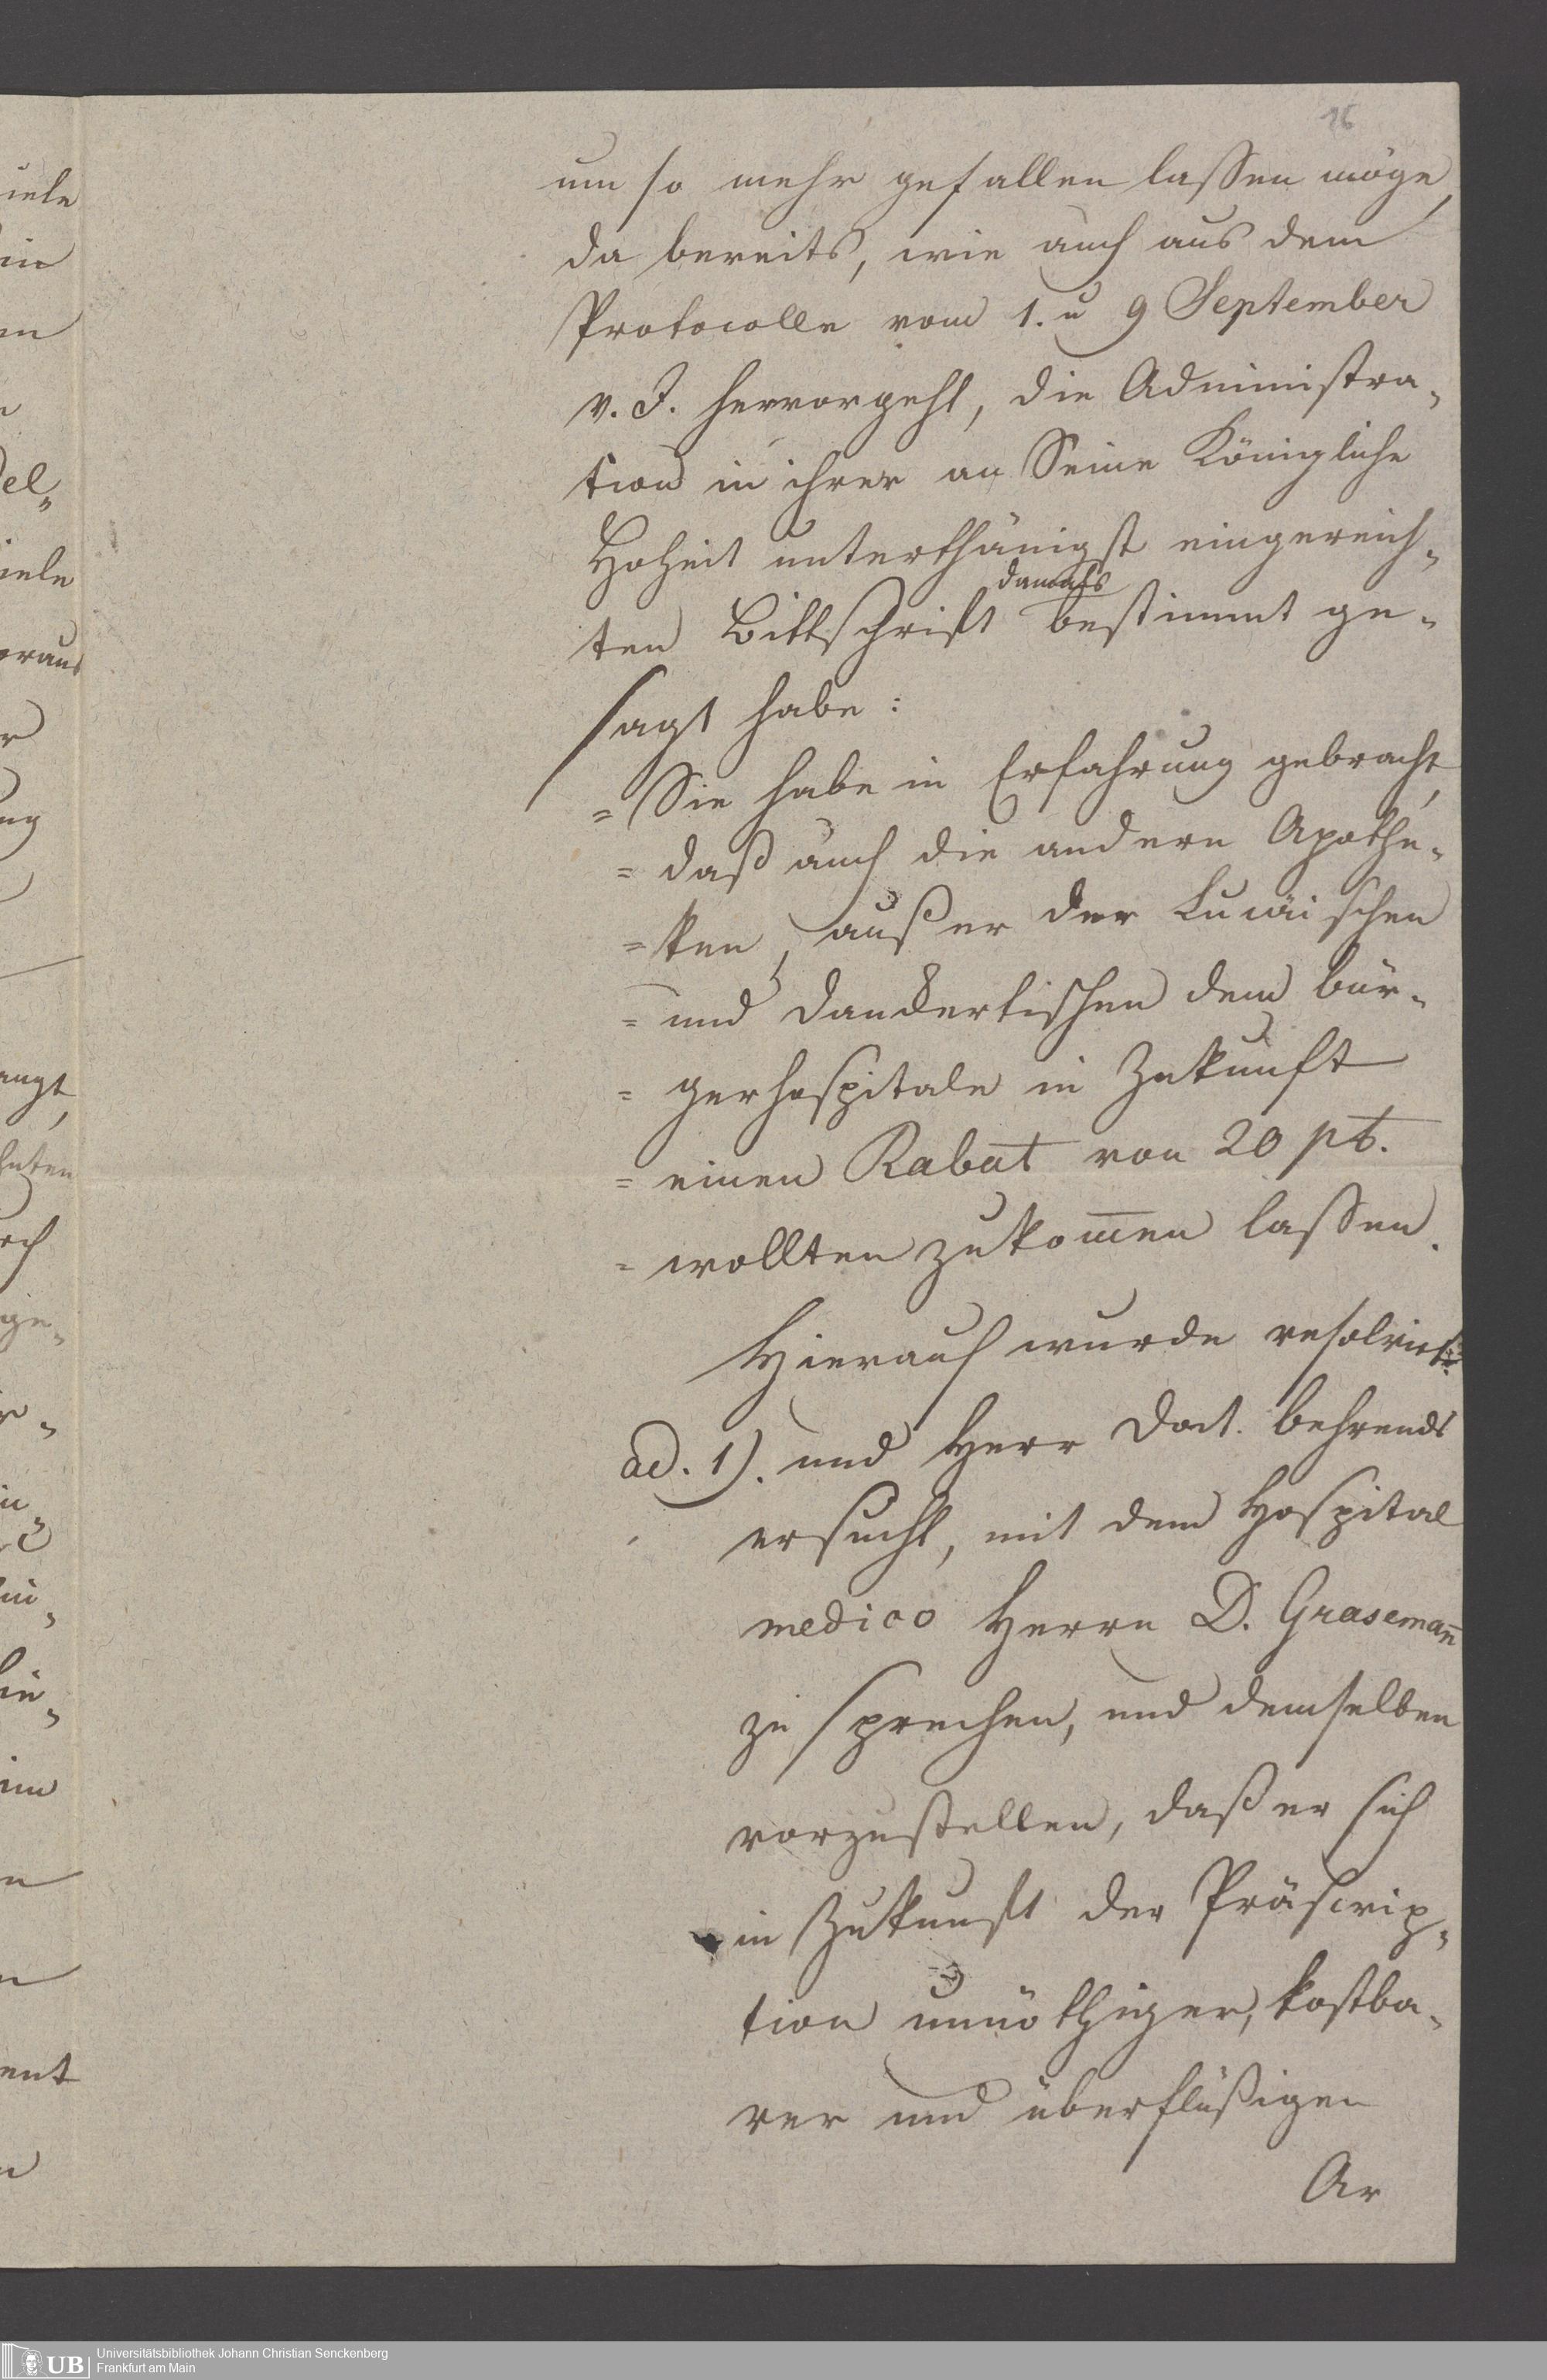 16
um so mehr gefallen lassen möge,
da bereits, wie auch aus dem
Protocolle vom 1. u 9 September
v. J. hervorgeht, die Administra-
tion in ihrer an Seine Königliche
Hoheit unterthänigst eingereich-
damals
ten Bittschrift bestimmt ge-
sagt habe:
= Sie habe in Erfahrung gebracht,
= daß auch die andern Apothe-
= ken, außer der Lucäischen
= und Dankertischen dem bür-
= gerhospitale in Zukunft
= einen Rabat von 20 pt.
= wollten zukom̄en lassen.
Hierauf wurde resolvirt:
ad. 1). und Herr Doct. Behrends
ersucht, mit dem Hospital
medico Herrn D. Graseman̄
zu sprechen, und demselben
vorzustellen, daß er sich
in Zukunft der Präscrip-
tion unnöthiger, kostba-
rer und überflüßigen
Ar
iele
in
en
del-
iele
oraus
r
ng
angt,
hnten
och
ge-
im
ent
UB
Universitätsbibliothek Johann Christian Senckenberg
Frankfurt am Main